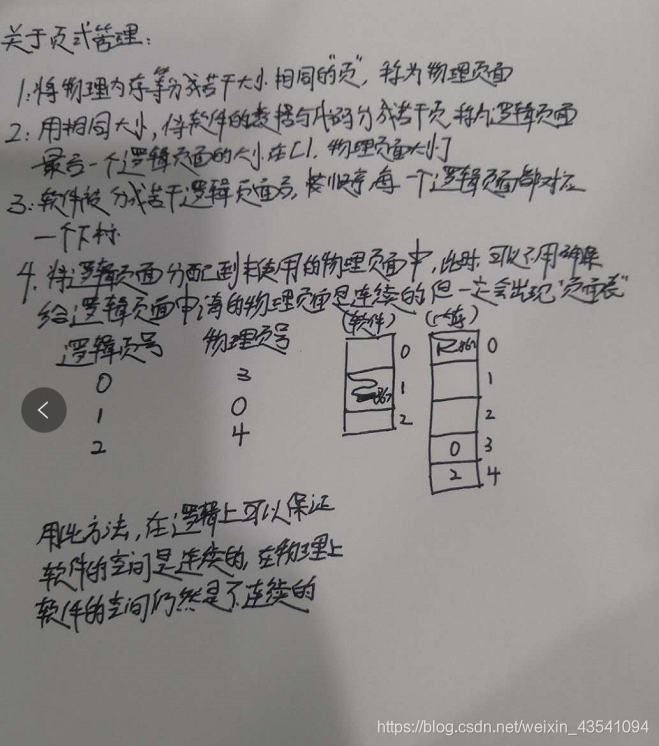 关于页式管理:
1:将物理内存等分成若干大小相同的"页", 称为物理页面
2: 用相同大小, 将软件的数据与代码分成若干页,称为逻辑页面
最后一个逻辑页面的大小在[1, 物理页面大小]
3: 软件被分成若干逻辑页面后, 按顺序,每一个逻辑页面都对应
一个下标.
4. 将逻辑页面分配到未使用的物理页面中, 此时, 可以不用确保
给逻辑页面申请的物理页面是连续的, 但一定会出现"页面表"
逻辑页号 物理页号 (软件) (内存)
0 3
1 0
2 4
0
1
2
0
1
2
0 3
2 4
用此方法, 在逻辑上可以保证
软件的空间是连续的, 在物理上
软件的空间仍然是不连续的
https://blog.csdn.net/weixin_43541094